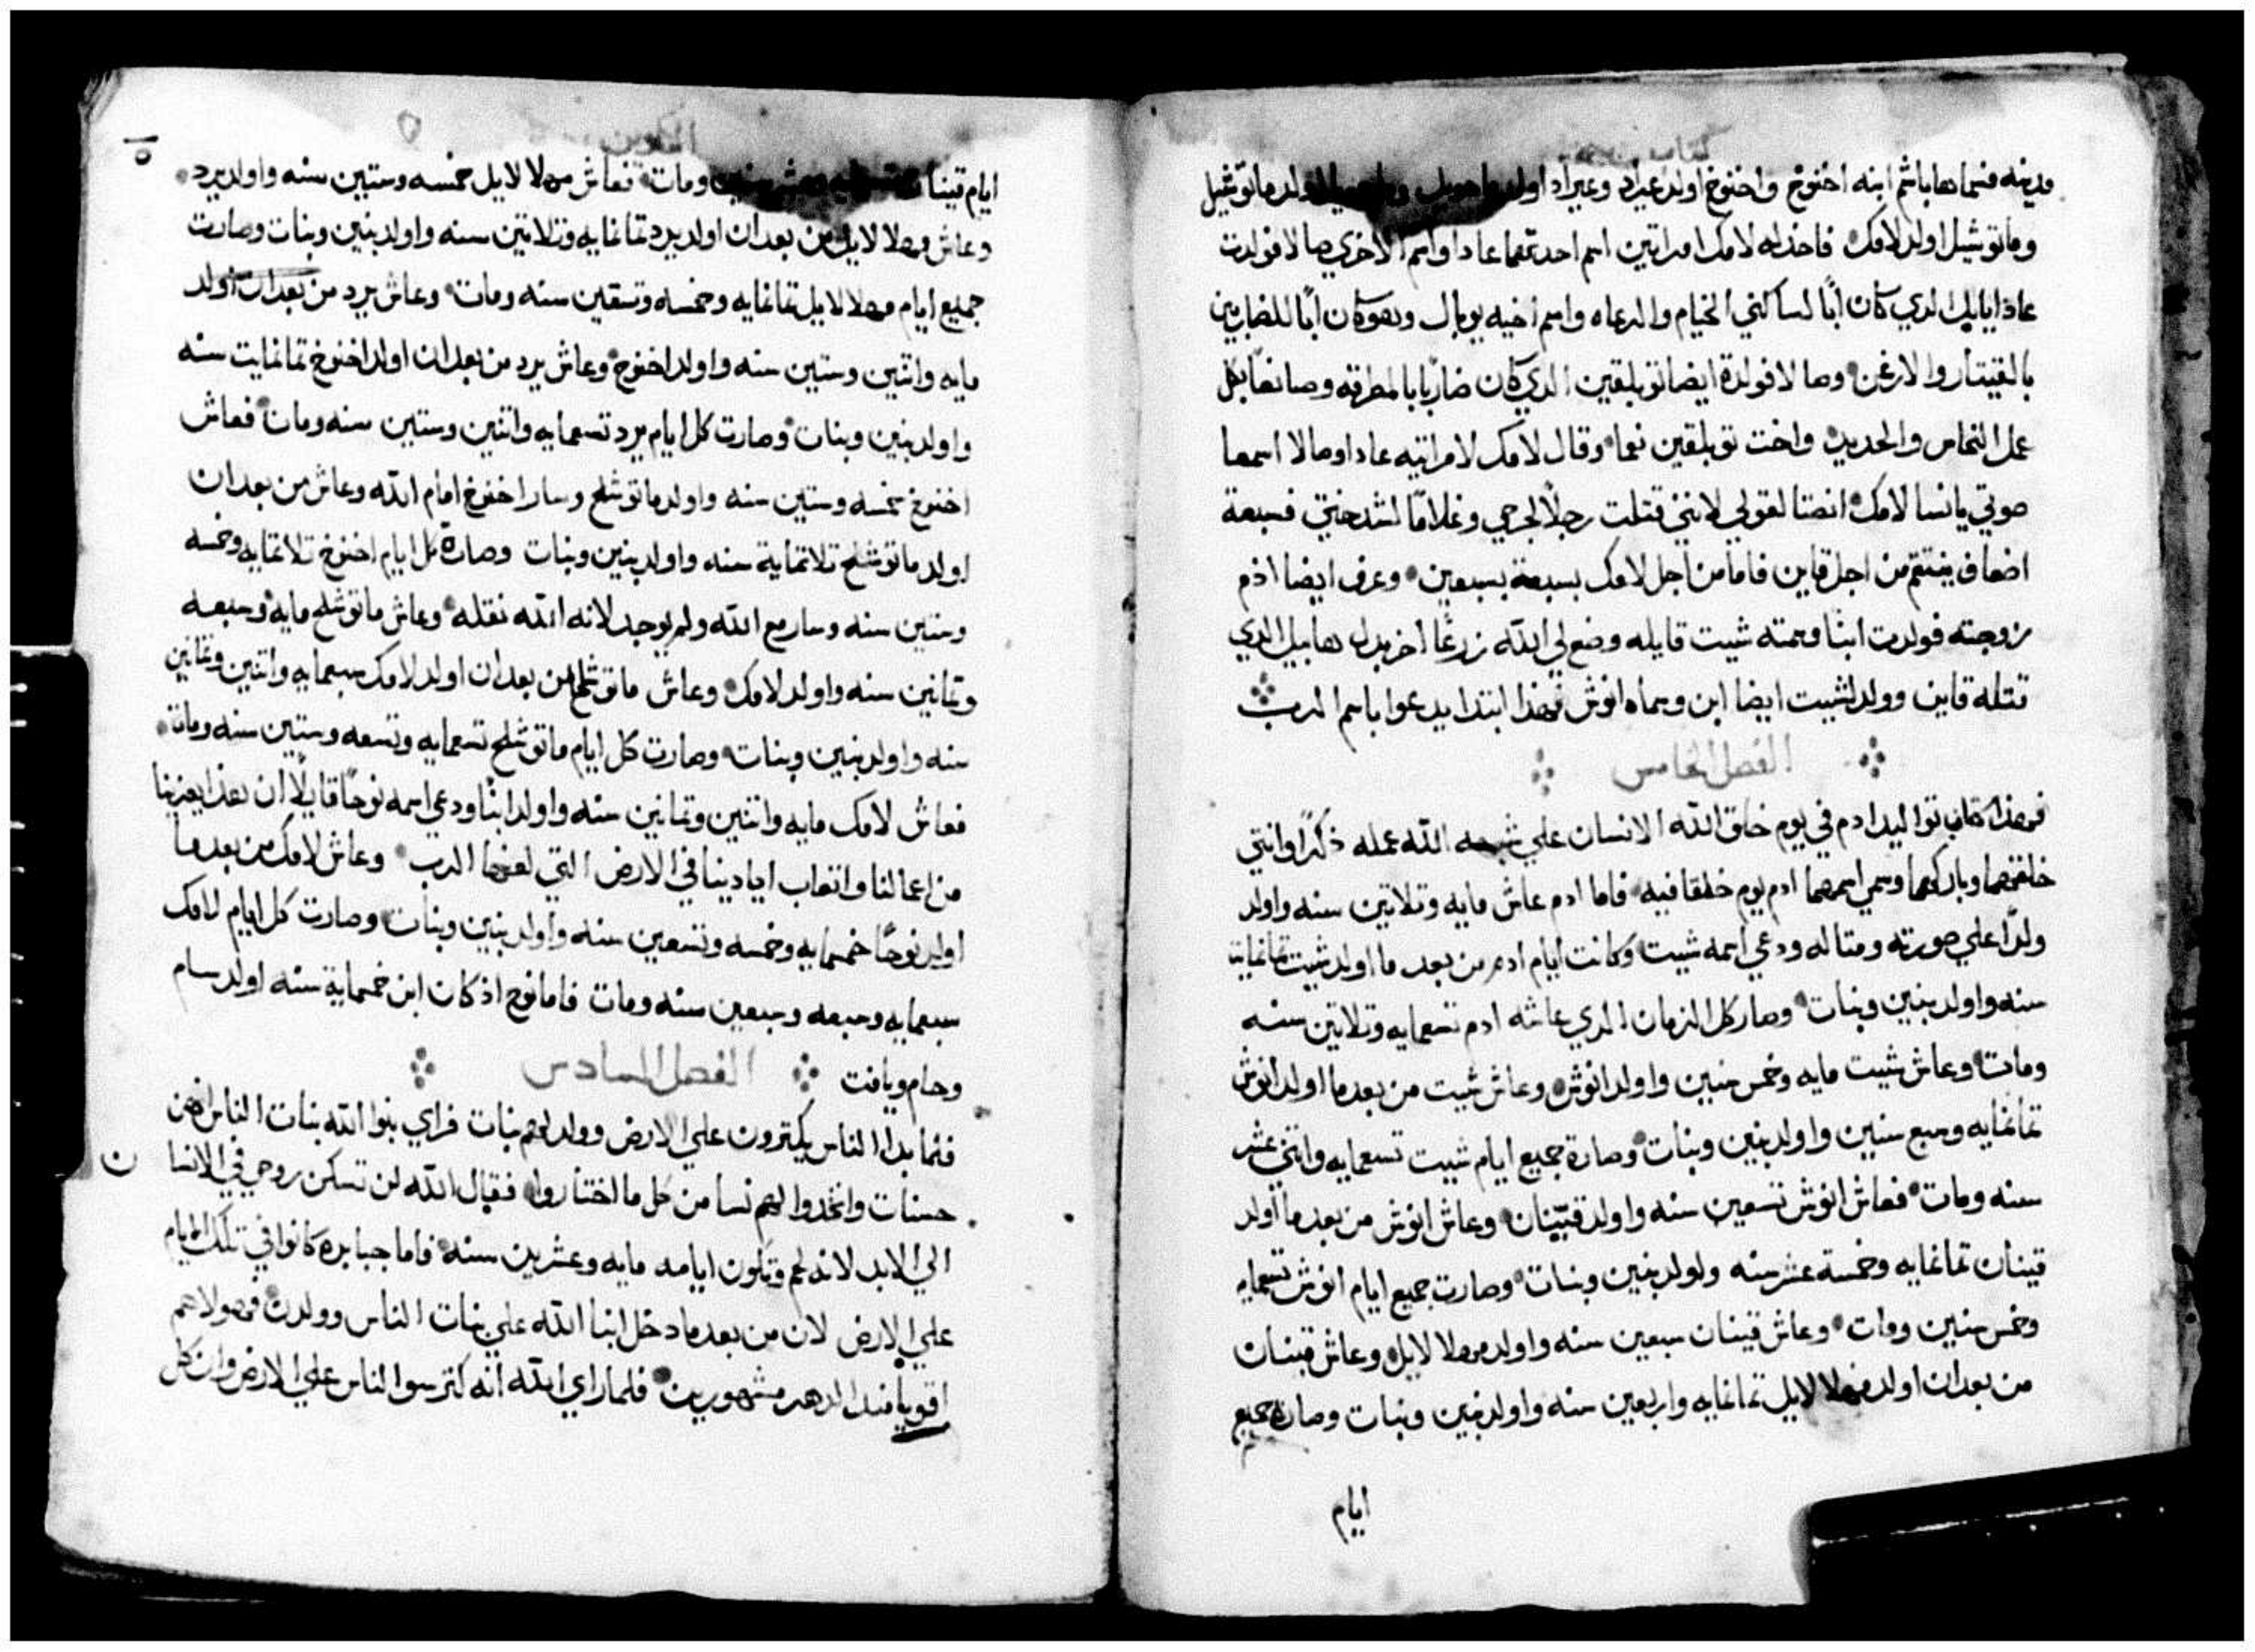 مدينه فسماها باسم ابنه اخنوخ واخنوخ اولد عيراد وعيراد اولد ماتوشيل
وماتوشيل اولد لامك فاخذ له لامك امراتين اسم احدتهما عادا واسم الاخري صالا فولدت
عادا يابل الدي كان ابًا لساكني الخيام والرعاه واسم اخيه يوبال وهو كان ابًا للضاربين
بالقيتار والارغن وصالا فولدة ايضا توبلقين الدي كان ضاربًا بالمطرقه وصانعًا بكل
عمل النحاس والحديد واخت توبلقين نعما وقال لامك لامراتيه عادا وصالا اسمعا
صوتي يا نسا لامك انصتا لقولي لانني قتلت رجلًا لجرحي وغلامًا لشدختي فسبعة
اضعاف ينتقم من اجل قاين فاما من اجل لامك بسبعة بسبعين وعرف ايضا ادم
زوجته فولدت ابنًا وسمته شيت قايله وضع لي الله زرعًا اخر بدل هابيل الدي
قتله قاين وولد لشيت ايضا ابن وسماه انوش فهذا ابتدا يدعوا باسم الرب
الفصل الخامس
فهذا كتاب تواليد ادم في يوم خلق الله الانسان علي شبه الله عمله ذكرًا وانتي
خلقهما وباركهما وسمي اسمهما ادم يوم خلقا فيه فاما ادم عاش مايه وتلاتين سنه واولد
ولدًا علي صورته ومتاله ودعي اسمه شيت وكانت ايام ادم من بعد ما اولد شيت تمانماية
سنه واولد بنين وبنات وصار كل الزمان الدي عاشه ادم تسعمايه وتلاتين سنه
ومات وعاش شيت مايه وخمس سنين واولد انوش وعاش شيت من بعد ما اولد انوش
تمانمايه وسبع سنين واولد بنين وبنات وصارة جميع ايام شيت تسعمايه واتني عشر
سنه ومات فعاش انوش تسعين سنه واولد قينان وعاش انوش من بعد ما اولد
قينان تمانمايه وخمسة عشر سنه واولد بنين وبنات وصارت جميع ايام انوش تسعمايه
وخمس سنين ومات وعاش قينان سبعين سنه واولد مهلا لايل وعاش قينان
من بعد ان اولد مهلا لايل تمانمايه واربعين سنه واولد بنين وبنات وصارة جميع
ايام
ايام قينان ومات فعاش مهلا لايل خمسه وستين سنه واولد يرد
وعاش مهلا لايل من بعد ان اولد يرد تمانمايه وتلاتين سنه واولد بنين وبنات وصارت
جميع ايام مهلا لايل تمانمايه وخمسه وتسعين سنه ومات وعاش يرد من بعد ان اولد
مايه واتنين وستين سنه واولد اخنوخ وعاش يرد من بعد ان اولد اخنوخ تمانمايت سنه
واولد بنين وبنات وصارت كل ايام يرد تسعمايه واتنين وستين سنه ومات فعاش
اخنوخ خمسه وستين سنه واولد ماتوشلح وسار اخنوخ امام الله وعاش من بعد ان
اولد ماتوشلح تلاتماية سنه واولد بنين وبنات وصارة كل ايام اخنوخ تلاتمايه وخمسه
وستين سنه وسار مع الله ولم يوجد لانه الله نقله وعاش ماتوشلح مايه وسبعه
وتمانين سنه واولد لامك وعاش ماتوشلح من بعد ان اولد لامك سبعمايه واتنين وتمانين
سنه واولد بنين وبنات وصارت كل ايام ماتوشلح تسعمايه وتسعه وستين سنه ومات
فعاش لامك مايه واتنين وتمانين سنه واولد ابنًا ودعي اسمه نوحًا قايلًا ان هذا يعزينا
من اعمالنا واتعاب ايادينا في الارض التي لعنها الرب وعاش لامك من بعد ما
اولد نوحًا خمسمايه وخمسه وتسعين سنه واولد بنين وبنات وصارت كل ايام لامك
سبعمايه وسبعه وسبعين سنه ومات فاما نوح اذ كان ابن خمسماية سنه اولد سام
وحام ويافت الفصل السادس
فلما بدا الناس يكترون علي الارض وولد لهم بنات فراي بنوا الله بنات الناس انهن
حسنات واتخدوا لهم نسا من كل ما اختاروا فقال الله لن تسكن روحي في الانسان
الي الابد لانه لحم وتكون ايامه مايه وعشرين سنه فاما جبابره كانوا في تلك الايام
علي الارض لان من بعد ما دخل ابنا الله علي بنات الناس وولدن فهولا هم
اقويا مند الدهر مشهورين فلما راي الله انه كتر سوا الناس علي الارض وان كل